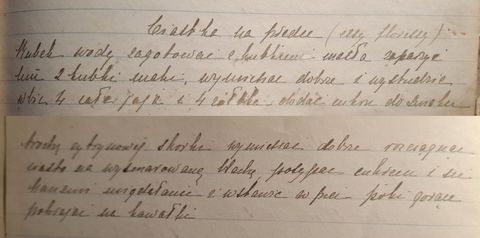 Ciastka na prędce
Kubek wody zagotować z kubkiem masła zaparzyć
nim 2 kubki mąki, wymieszać dobrze i wystudzić
wbić 4 całe jaja i 4 żółtka, dodać cukru do smaku
trochę cytrynowej skórki wymieszać dobrze rozciągnąć
ciasto na wysmarowaną blachę, posypać cukrem i sie
kanemi migdałami i wstawić w piec póki gorące
pokrajać na kawałki